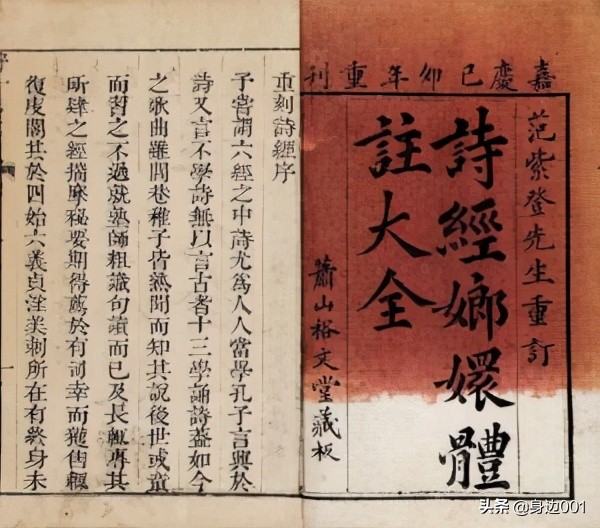 嘉慶已卯年重刊
范紫登先生重訂
詩經嫏嬛體
註大全
蕭山裕文堂藏板
重刻詩經序
予嘗謂六經之中詩尤爲人人當學孔子言興於
詩又言不學詩無以言古者十三學誦詩蓋如今
之歌曲雖閭巷稚子皆熟聞而知其說後世或童
而習之不過就塾師粗識句讀而已及長輒專其
所肄之經揣摩秘要期得薦於有司幸而獲售輒
復庋閣其於四始六義貞淫美刺所在有終身未
头条 @身边001